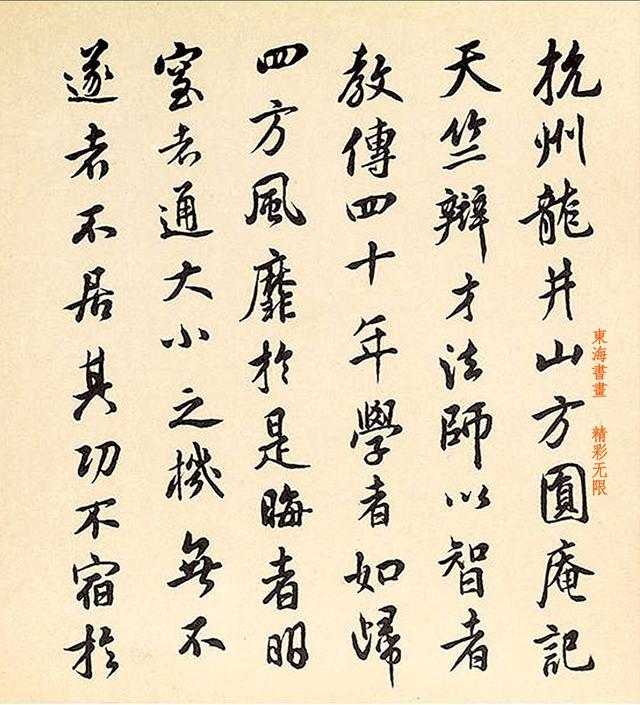 杭州龍井山方圓庵記
天竺辯才法師以智者
教傳四十年學者如歸
四方風靡於是晦者明
窒者通大小之機無不
遂者不居其功不宿於
東海書畫 精彩无限